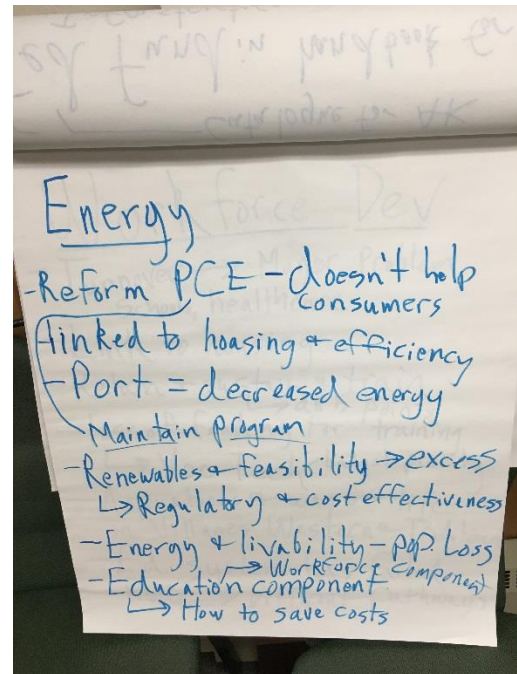 Energy
- Reform PCE - doesn't help
consumers
linked to housing & efficiency
- Port = decreased energy
Maintain program
- Renewables & feasibility → excess
↳ Regulatory & cost effectiveness
- Energy & livability - pop. Loss
→ Workforce component
- Education component
↳ How to save costs